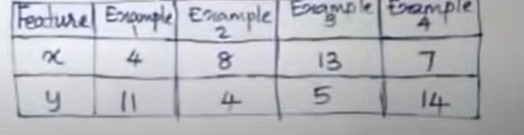 Feature Example 1 Example 2 Example 3 Example 4
x 4 8 13 7
y 11 4 5 14